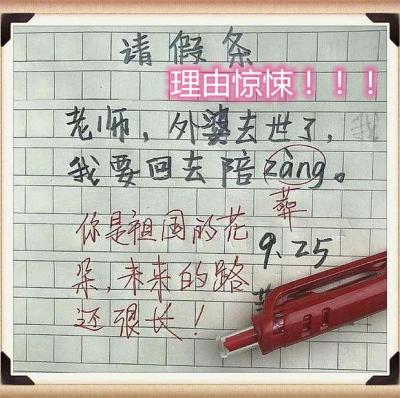 请假条
理由惊悚！！！
老师，外婆去世了，我
我要回去陪zàng。
葬
你是祖国的花
9.25
朵，未来的路
还很长！